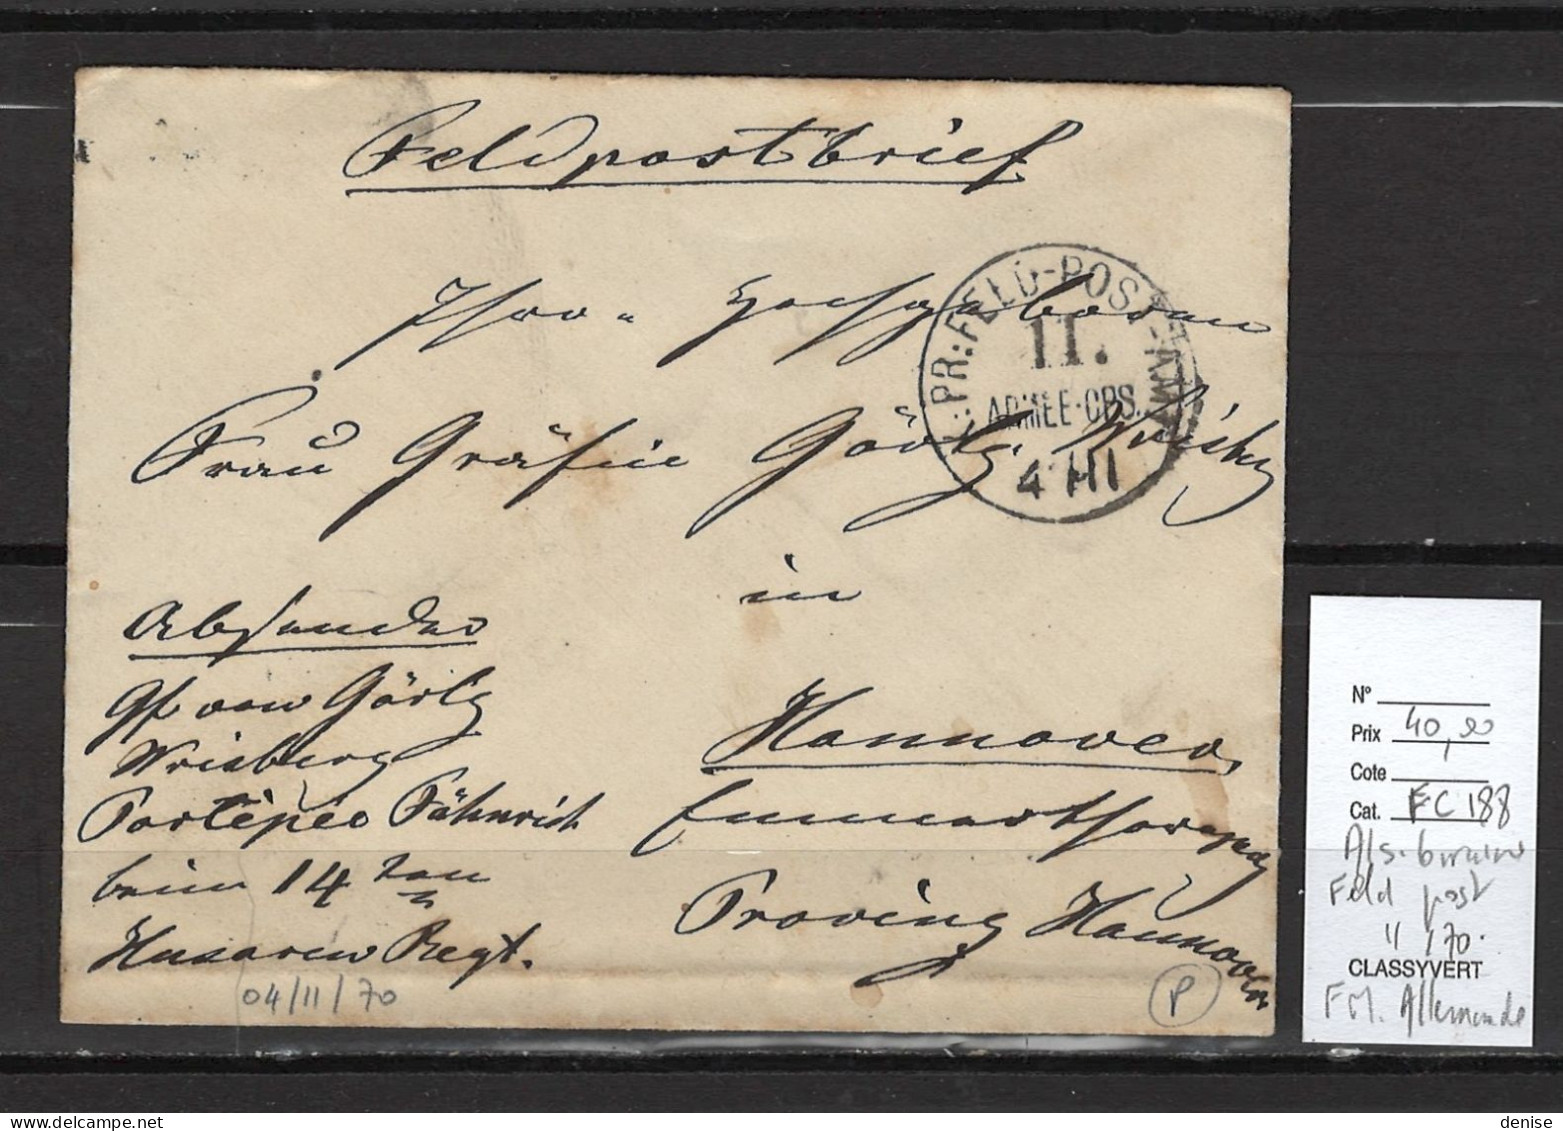 Feldpostbrief
Ihro. Hochgeboren
Frau Gräfin Görtz. Wrisberg
in
Hannover.
Provinz Hannover
PR: FELD-POST-AMT
II.
ARMEE-CPS.
4 11
Absender
Gf von Görtz
Wrisberg
Portépée Fähnrich
beim 14ten
Husaren Regt.
04/11/70
P
N°
Prix 40,00
Cote
Cat. FC 188
Feld post
" 70.
CLASSYVERT
FM. Allemande
denise